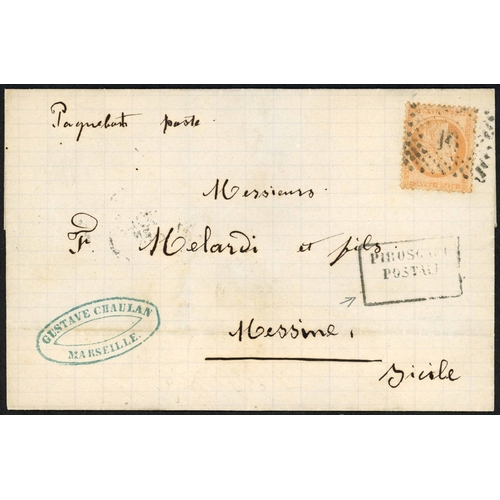 Paquebot poste
Messieurs
F. Melardi et fils
PIROSCAFI
POSTALI
Messine,
Sicile
GUSTAVE CHAULAN
MARSEILLE.